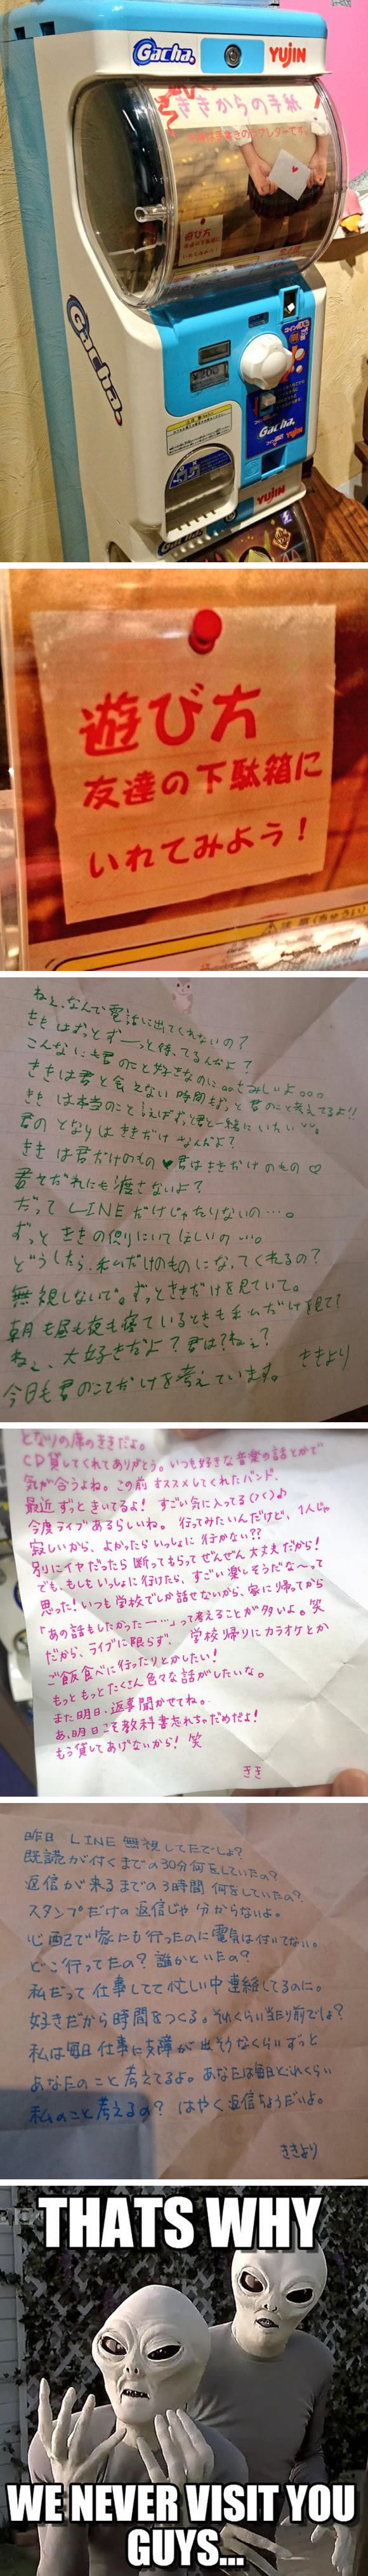 Gacha.
YUJIN
ききからの手紙
遊び方
Gacha.
200
Gacha.
YUJIN
YUJIN
遊び方
友達の下駄箱に
いれてみよう!
ねぇ、なんで電話に出てくれないの?
ききはずっとずーっと待ってるんだよ?
こんなにも君のこと好きなのに。。さみしいよ。。。
ききは君と会えない時間もずっと君のこと考えてるよ!!
きき は本当のこといえばずっと君と一緒にいたい
君の となりは ききだけ なんだよ?
きき は君だけのもの♥君はききだけ のもの♡
君をだれにも渡さないよ?
だって LINE だけじゃたりないの…。
ずっと ききの側りにいてほしいの…。
どうしたら、私だけのものになってくれるの?
無視しないで。ずっとききだけを見ていて。
朝も昼も夜も寝ているときも私だけを見て?
ねぇ、大好きだよ?君は?ねぇ?
今日も君のことだけを考えています。 ききより
となりの席のききだよ。
CD貸してくれてありがとう。いつも好きな音楽の話とかで
気が合うよね。この前オススメしてくれたバンド、
最近ずっときいてるよ! すごい気に入ってる(><)♪
今度ライブあるらしいね。行ってみたいんだけど、1人じゃ
寂しいから、よかったらいっしょに行かない??
別にイヤだったら断ってもらってぜんぜん大丈夫だから!
でも、もしもいっしょに行けたら、すごい楽しそうだな〜って
思った!いつも学校でしか話せないから、家に帰ってから
「あの話もしたかったー…」って考えることが多いよ。笑
だから、ライブに限らず、学校帰りにカラオケとか
ご飯食べに行ったりとかしたい!
もっともっとたくさん色々な話がしたいな。
また明日、返事聞かせてね。
あ、明日こそ教科書忘れちゃだめだよ!
もう貸してあげないから! 笑
きき
昨日 LINE 無視してたでしょ?
既読が付くまでの30分何をしていたの?
返信が来るまでの3時間 何をしていたの?
スタンプだけの返信じゃ分からないよ。
心配で家にも行ったのに電気は付いてない。
どこ行ってたの?誰かといたの?
私だって仕事してて忙しい中連絡してるのに。
好きだから時間をつくる。それくらい当たり前でしょ?
私は毎日仕事に支障が出そうなくらいずっと
あなたのこと考えてるよ。あなたは毎日どれくらい
私のこと考えるの? はやく返信ちょうだいよ。
ききより
THATS WHY
WE NEVER VISIT YOU
GUYS...